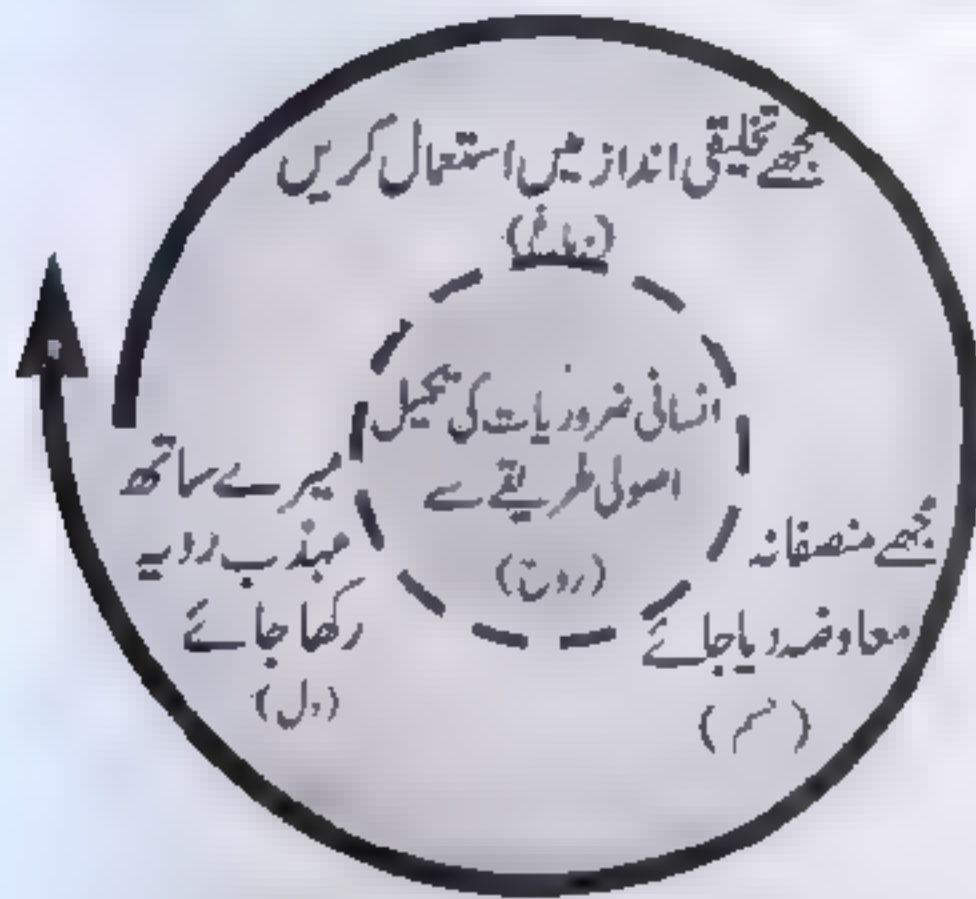 مجھے تخلیقی انداز میں استعمال کریں
(دماغ)
انسانی ضروریات کی تکمیل
اصولی طریقے سے
(روح)
میرے ساتھ
مہذب رویہ
رکھا جائے
(دل)
مجھے منصفانہ
معاوضہ دیا جائے
(جسم)